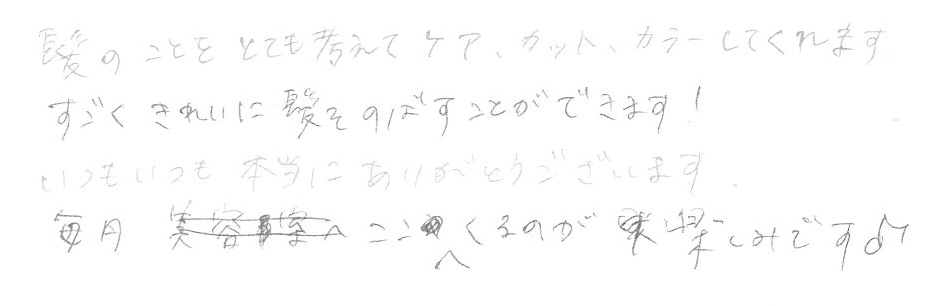 髪のことをとても考えてケア、カット、カラーしてくれます
すごくきれいに髪をのばすことができます!
いつもいつも本当にありがとうございます.
毎月 ここへくるのが楽しみです♪